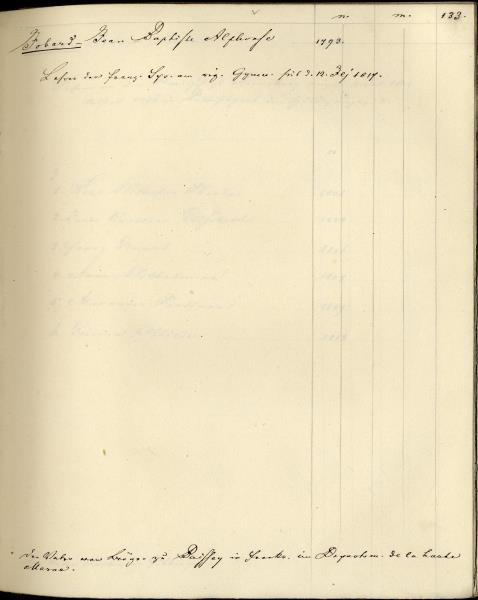 n. m. 133.
Jobard - Jean Baptiste Alphonse 1793.
Lehrer der franz. Spr. am rig. Gymn. seit d. 12. Sept 1817.
Der Vater war Bürger zu Baissey in Frankr. im Departem. de la haute
Marne.